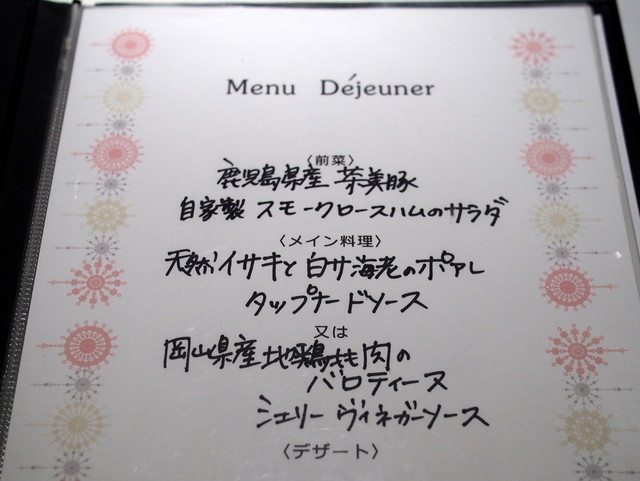 Menu Déjeuner
〈前菜〉
鹿児島県産 茶美豚
自家製 スモークロースハムのサラダ
〈メイン料理〉
天然イサキと白サ海老のポアレ
タップナードソース
又は
岡山県産地鶏もも肉の
バロティーヌ
シェリーヴィネガーソース
〈デザート〉